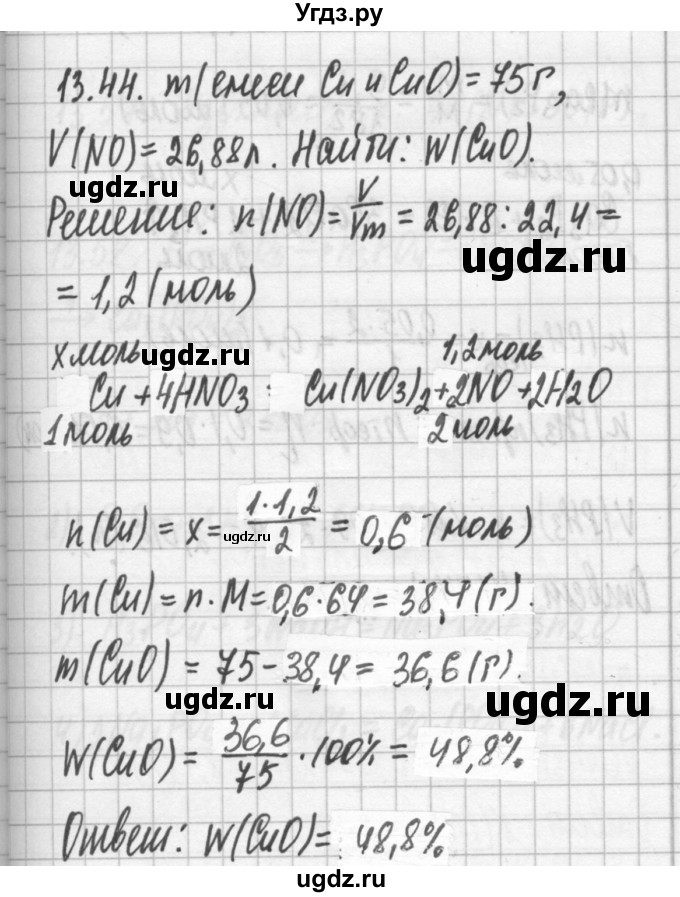 Угдз.ру
13.44. m(смеси Cu и CuO) = 75 г,
V(NO) = 26,88 л. Найти: W(CuO).
ugdz.ru
Решение: n(NO) = V/Vm = 26,88 : 22,4 =
ugdz.ru
= 1,2 (моль)
x моль ugdz.ru 1,2 моль
Cu + 4HNO3 : Cu(NO3)2 + 2NO + 2H2O
1 моль ugdz.ru 2 моль
n(Cu) = x = 1·1,2/2 = 0,6 (моль)
ugdz.ru ugdz.ru
m(Cu) = n·M = 0,6·64 = 38,4 (г).
m(CuO) = 75 - 38,4 = 36,6 (г).
ugdz.ru ugdz.ru
W(CuO) = 36,6/75 · 100% = 48,8%.
Ответ: W(CuO) = 48,8%
ugdz.ru
ugdz.ru